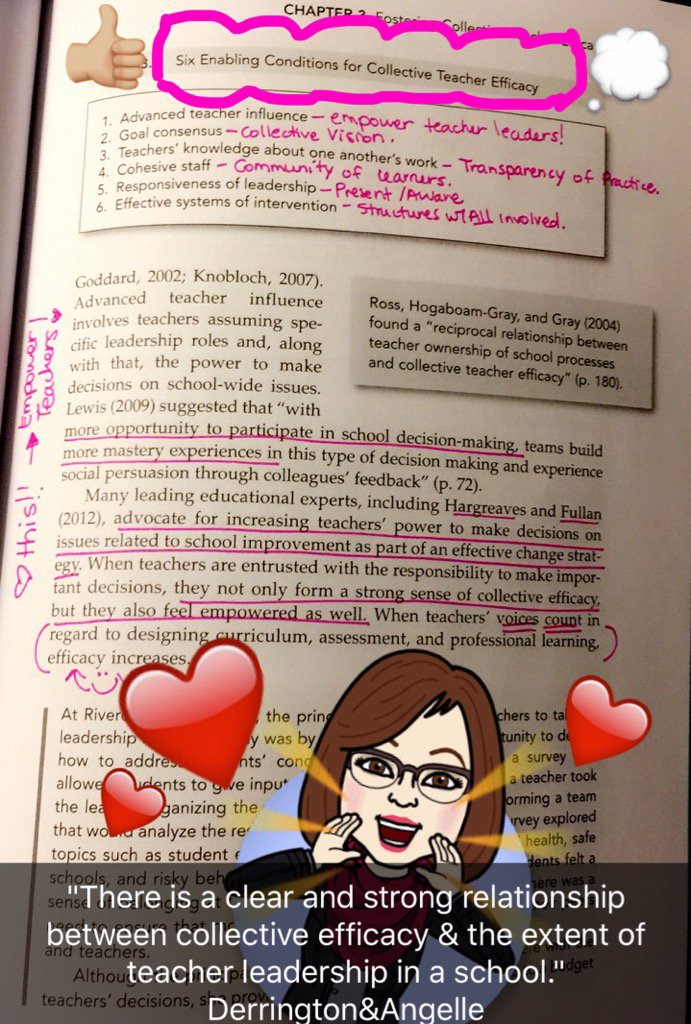 CHAPTER 2 Fostering Collective
3. Six Enabling Conditions for Collective Teacher Efficacy
1. Advanced teacher influence – empower teacher leaders!
2. Goal consensus – Collective Vision.
3. Teachers' knowledge about one another's work – Transparency of Practice.
4. Cohesive staff – Community of Learners.
5. Responsiveness of leadership – Present/Aware
6. Effective systems of intervention – Structures w/ All involved.
Goddard, 2002; Knobloch, 2007).
Advanced teacher influence
involves teachers assuming spe-
cific leadership roles and, along
with that, the power to make
decisions on school-wide issues.
Lewis (2009) suggested that "with
more opportunity to participate in school decision-making, teams build
more mastery experiences in this type of decision making and experience
social persuasion through colleagues' feedback" (p. 72).
Ross, Hogaboam-Gray, and Gray (2004)
found a "reciprocal relationship between
teacher ownership of school processes
and collective teacher efficacy" (p. 180).
this!! → Empower
Teachers!
Many leading educational experts, including Hargreaves and Fullan
(2012), advocate for increasing teachers' power to make decisions on
issues related to school improvement as part of an effective change strat-
egy. When teachers are entrusted with the responsibility to make impor-
tant decisions, they not only form a strong sense of collective efficacy,
but they also feel empowered as well. When teachers' voices count in
regard to designing curriculum, assessment, and professional learning,
efficacy increases.
At the princ chers to
leadership y was by tunity to
how to addres nts' a survey
allowe dents to give input a teacher took
the lea ganizing the orming a team
that would analyze the re rvey explored
topics such as student health, safe
schools, and risky beh dents felt a
sense of here was a
need to ensure that
and teachers.
budget
teachers' decisions,
"There is a clear and strong relationship
between collective efficacy & the extent of
teacher leadership in a school."
Derrington&Angelle